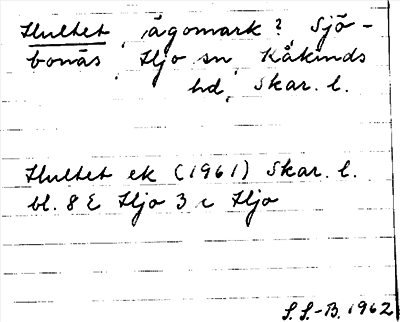 Hultet, ägomark?, Sjö-
bonäs, Hjo sn, Kåkinds
hd, Skar. l.
Hultet ek (1961) Skar. l.
bl. 8 E Hjo 3 c Hjo
S.S.-B. 1962